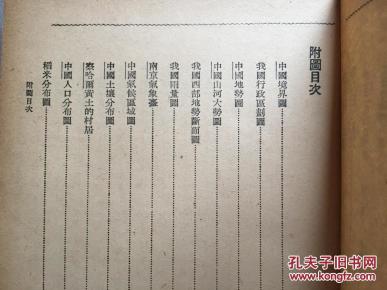 附圖目次
中國境界圖
我國行政區劃圖
中國地勢圖
中國山河大勢圖
我國西部地勢斷面圖
我國雨量圖
南京氣象臺
中國氣候區域圖
中國土壤分布圖
察哈爾黃土的村居
中國人口分布圖
稻米分布圖
附圖目次
孔夫子旧书网